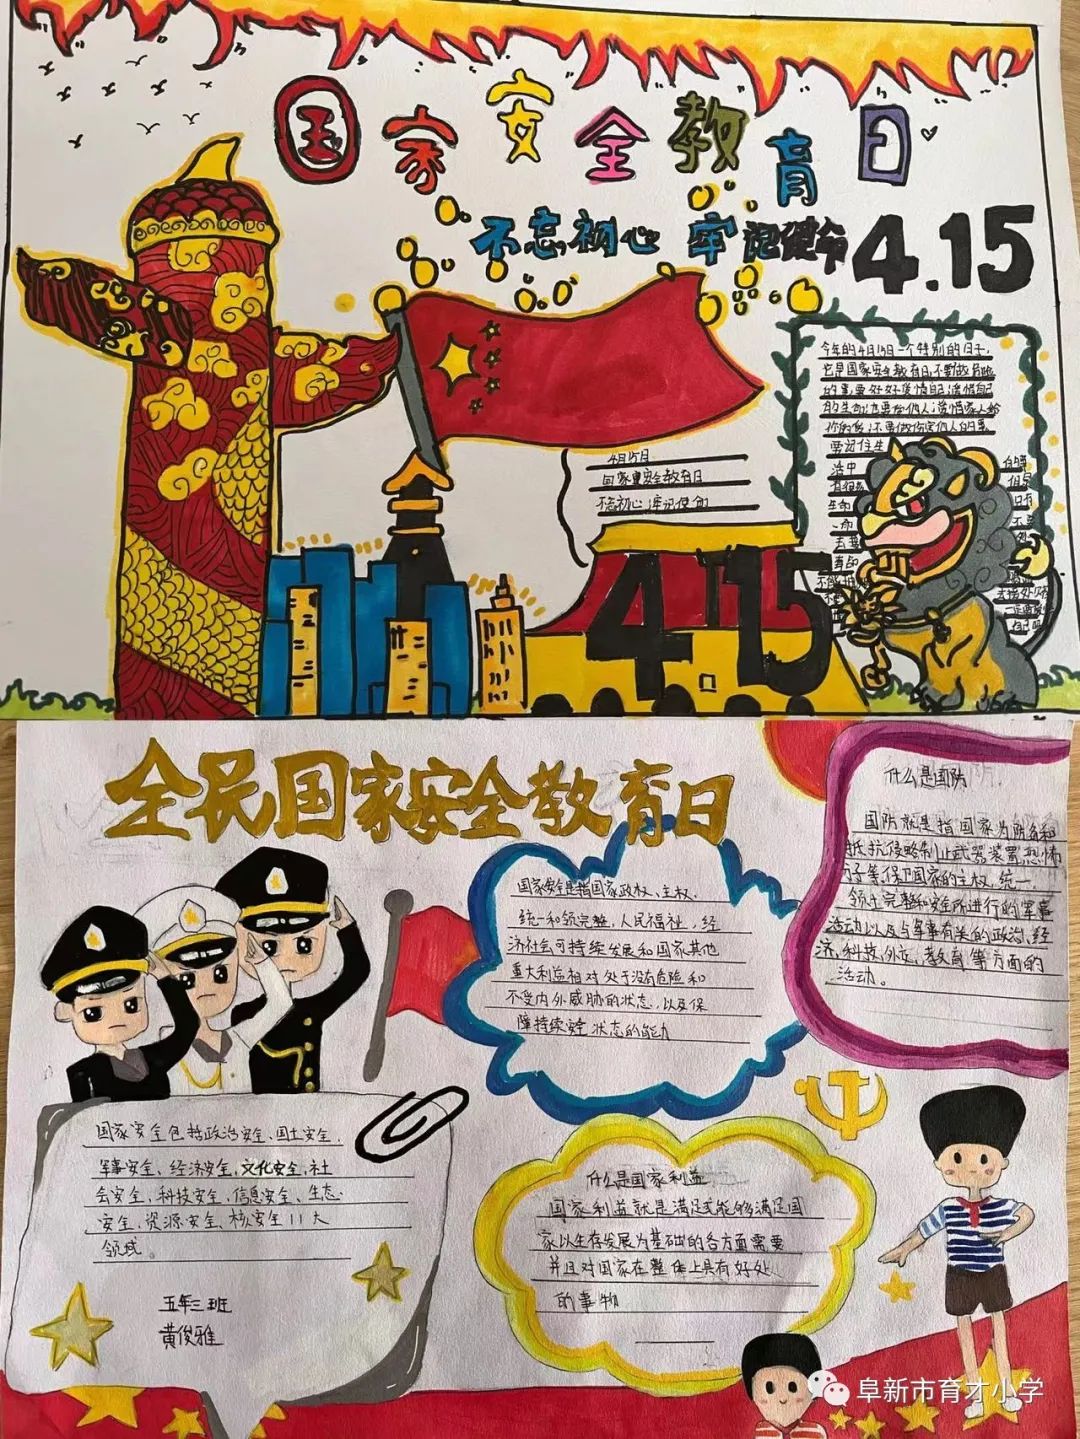 国家安全教育日
不忘初心 牢记使命 4.15
今年的4月15日一个特别的日子,
它是国家安全教育日,不要做危险
的事,要好好爱惜自己,爱惜自己
4月15月
国家安全教育日
不忘初心 牢记使命
要记住生
活中
生命
4.15
全民国家安全教育日
什么是国防
国防就是指国家为防备和
抵抗侵略制止武器装置,恐怖
分子等,保卫国家的主权,统一,
领土完整和安全所进行的军事
活动以及与军事有关的政治,经
济,科技,外交,教育等方面的
活动。
国家安全是指国家政权、主权,
统一和领完整,人民福祉,经
济社会可持续发展和国家其他
重大利益相对处于没有危险和
不受内外威胁的状态,以及保
障持续安全状态的能力
国家安全包括政治安全、国土安全,
军事安全、经济安全,文化安全,社
会安全,科技安全,信息安全、生态
安全,资源安全、核安全11大
领域。
五年三班
黄俊雅
什么是国家利益
国家利益就是满足或能够满足国
家以生存发展为基础的各方面需要
并且对国家在整体上具有好处
的事物
阜新市育才小学